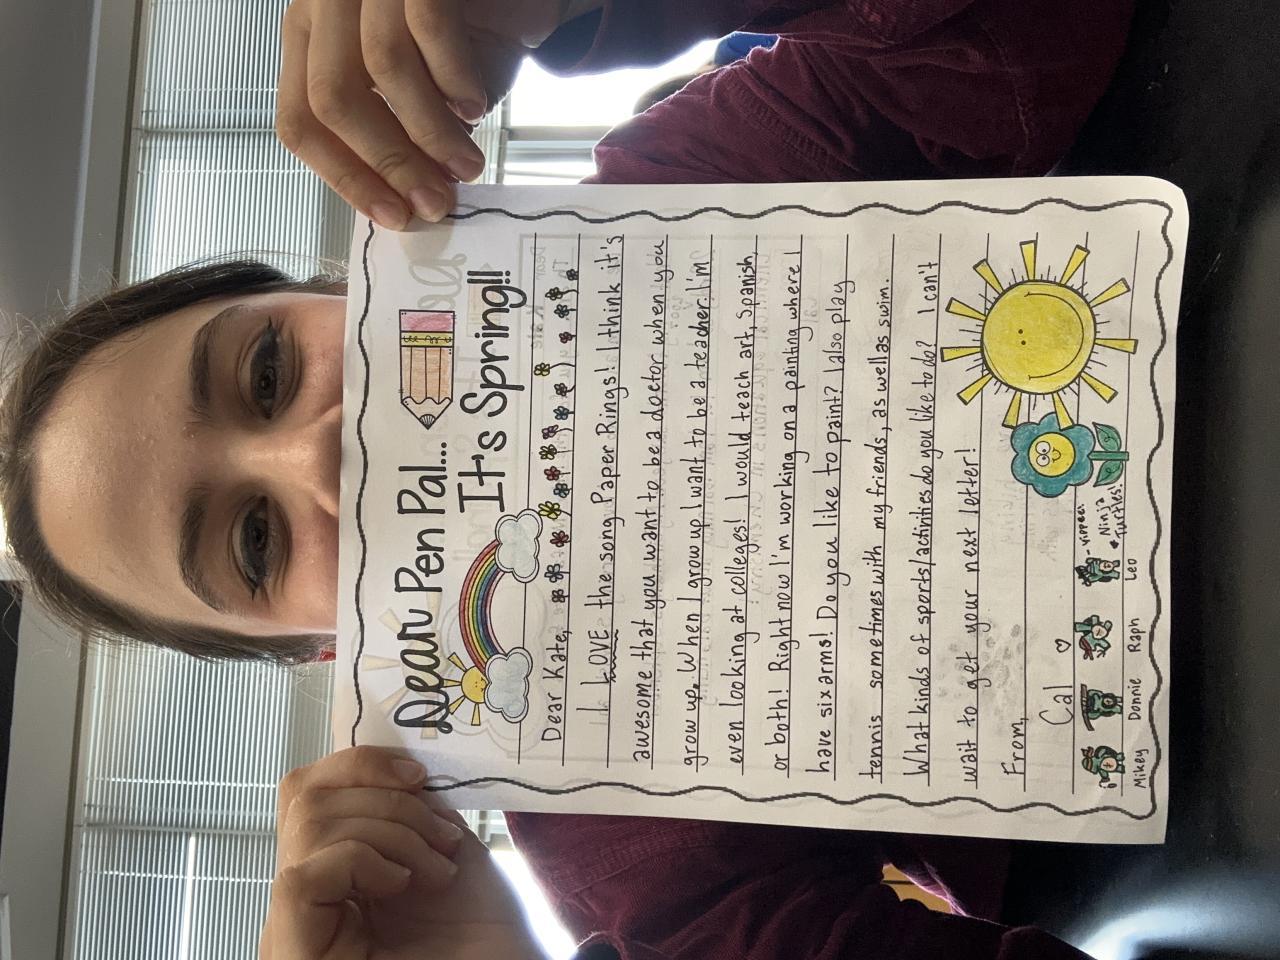 Dear Pen Pal...
It's Spring!!
Dear Kate,
I LOVE the song Paper Rings! I think it's
awesome that you want to be a doctor when you
grow up. When I grow up I want to be a teacher. I'm
even looking at colleges! I would teach art, Spanish,
or both! Right now I'm working on a painting where I
have six arms! Do you like to paint? I also play
tennis sometimes with my friends, as well as swim.
What kinds of sports/activities do you like to do? I can't
wait to get your next letter!
From,
Cal ♡
- yippee!
* Ninja
Turtles!
Mikey Donnie Raph Leo